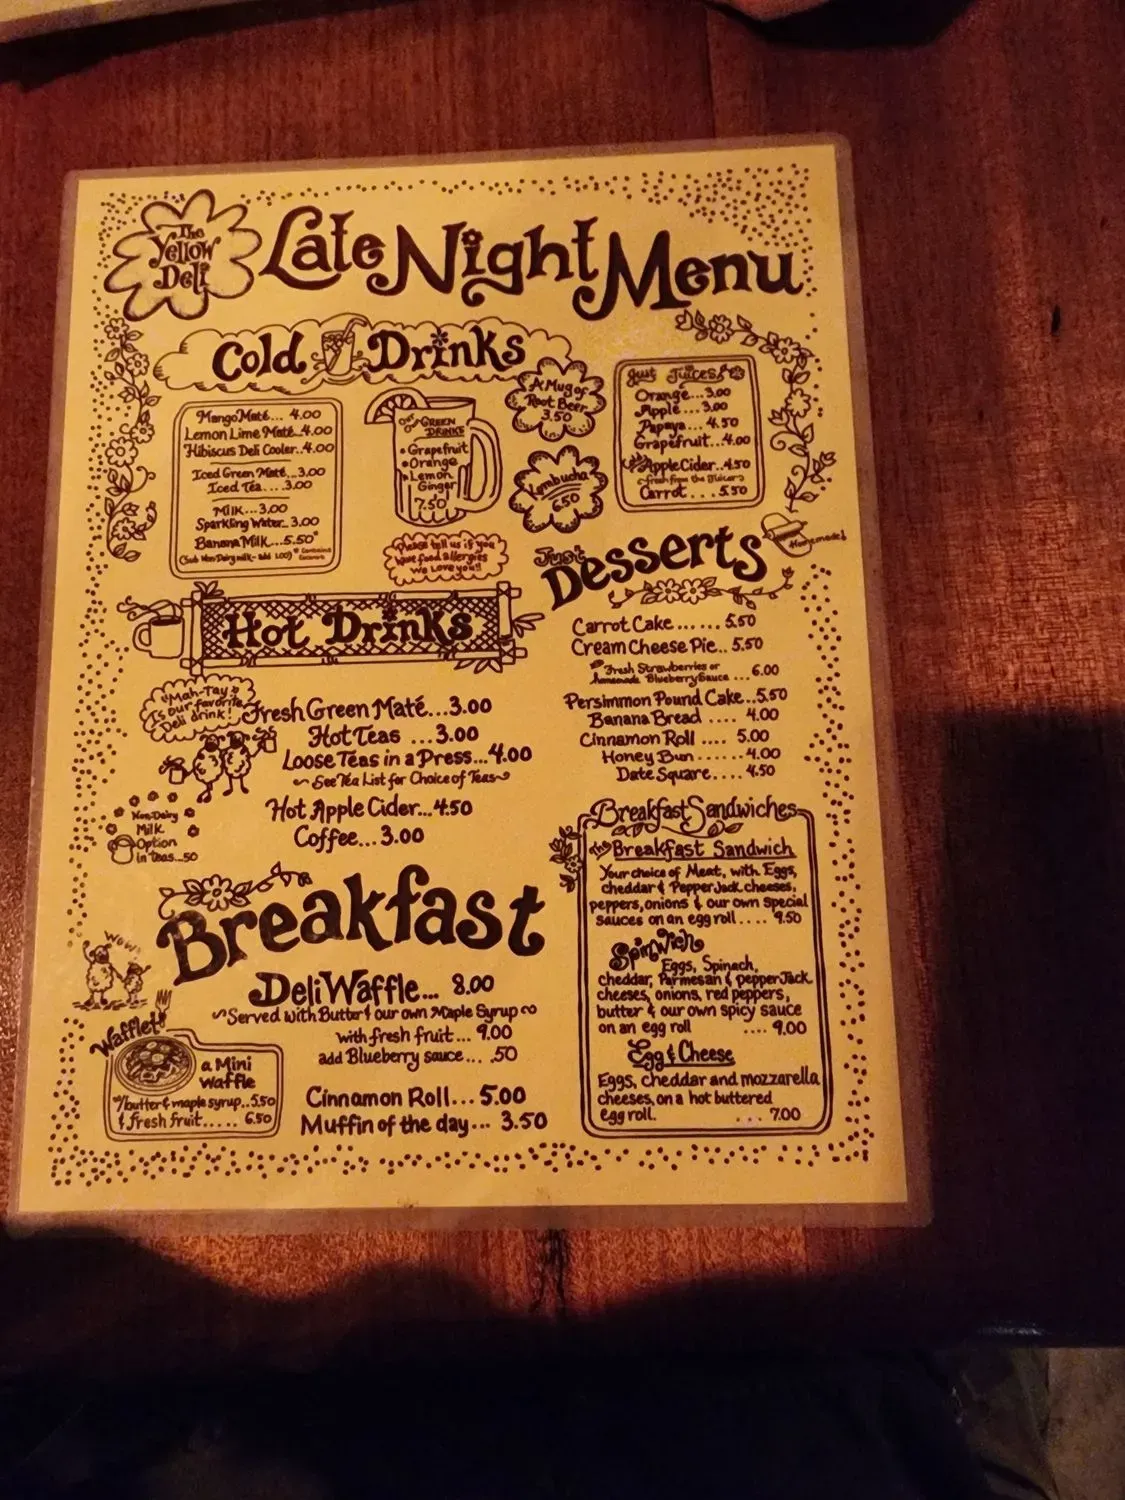 The
Yellow
Deli
Late Night Menu
Cold Drinks
Mango Maté... 4.00
Lemon Lime Maté..4.00
Hibiscus Deli Cooler..4.00
Iced Green Maté...3.00
Iced Tea....3.00
Milk...3.00
Sparkling Water..3.00
Banana Milk...5.50*
(Sub Non Dairy milk - add 1.00)
* Contains
Our
GREEN
DRINKS
• Grapefruit
• Orange
• Lemon
Ginger
7.50
A Mug of
Root Beer
3.50
Kombucha
6.50
Please tell us if you
have food allergies
We Love you!!
Just Juices!
Orange...3.00
Apple...3.00
Papaya... 4.50
Grapefruit...4.00
Apple Cider..4.50
~fresh from the Juicer~
Carrot....5.50
Hot Drinks
"Mah-Tay"
Is our favorite
Deli drink!
Fresh Green Maté...3.00
Hot Teas ...3.00
Loose Teas in a Press...4.00
~See Tea List for Choice of Teas~
Hot Apple Cider...4.50
Coffee...3.00
Non-Dairy
Milk
Option
in Teas...50
Desserts
Homemade!
Carrot Cake...... 5.50
Cream Cheese Pie.. 5.50
Fresh Strawberries or
homemade Blueberry Sauce ... 6.00
Persimmon Pound Cake..5.50
Banana Bread .... 4.00
Cinnamon Roll .... 5.00
Honey Bun......4.00
Date Square.... 4.50
Breakfast
WOW!
Deli Waffle... 8.00
~Served with Butter & our own Maple Syrup~
with fresh fruit... 9.00
add Blueberry sauce... .50
Cinnamon Roll... 5.00
Muffin of the day... 3.50
Wafflet!
a Mini
Waffle
w/butter & maple syrup..5.50
& fresh fruit..... 6.50
Breakfast Sandwiches
The Breakfast Sandwich
Your choice of Meat, with Eggs,
cheddar & Pepper Jack cheeses,
peppers, onions & our own special
sauces on an egg roll.... 9.50
Spinwich
Eggs, Spinach,
cheddar, Parmesan & pepper Jack
cheeses, onions, red peppers,
butter & our own spicy sauce
on an egg roll .... 9.00
Egg & Cheese
Eggs, cheddar and mozzarella
cheeses, on a hot buttered
egg roll. ... 7.00